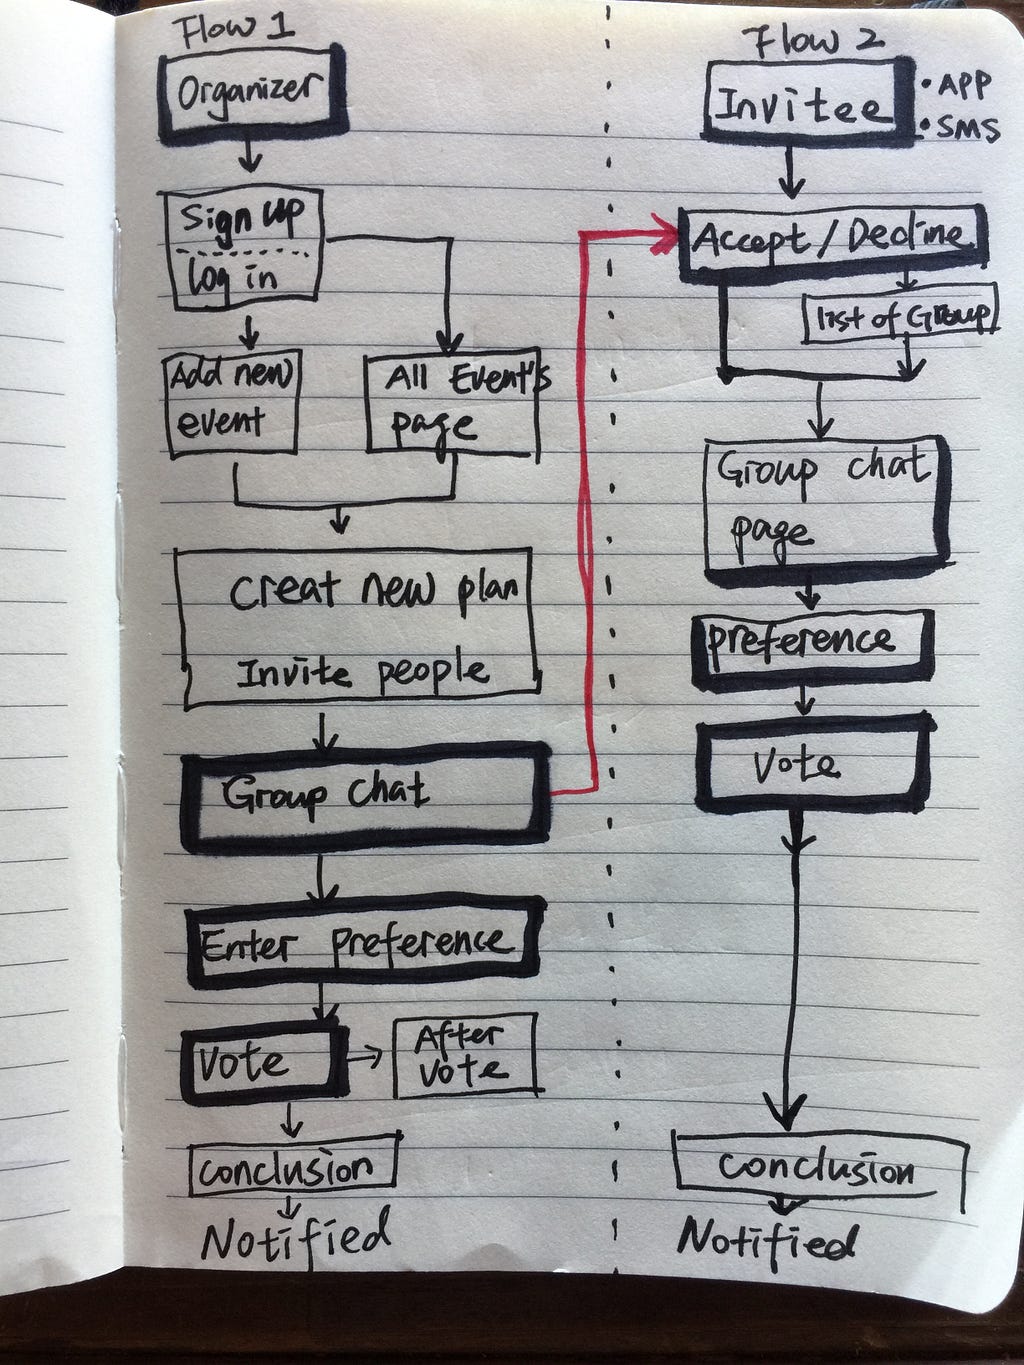 Flow 1
Organizer
Sign up
Log in
Add new
event
All Event's
page
Creat new plan
Invite people
Group chat
Enter Preference
Vote
After
vote
conclusion
Notified
Flow 2
Invitee
• APP
• SMS
Accept / Decline
list of Group
Group chat
page
preference
Vote
conclusion
Notified